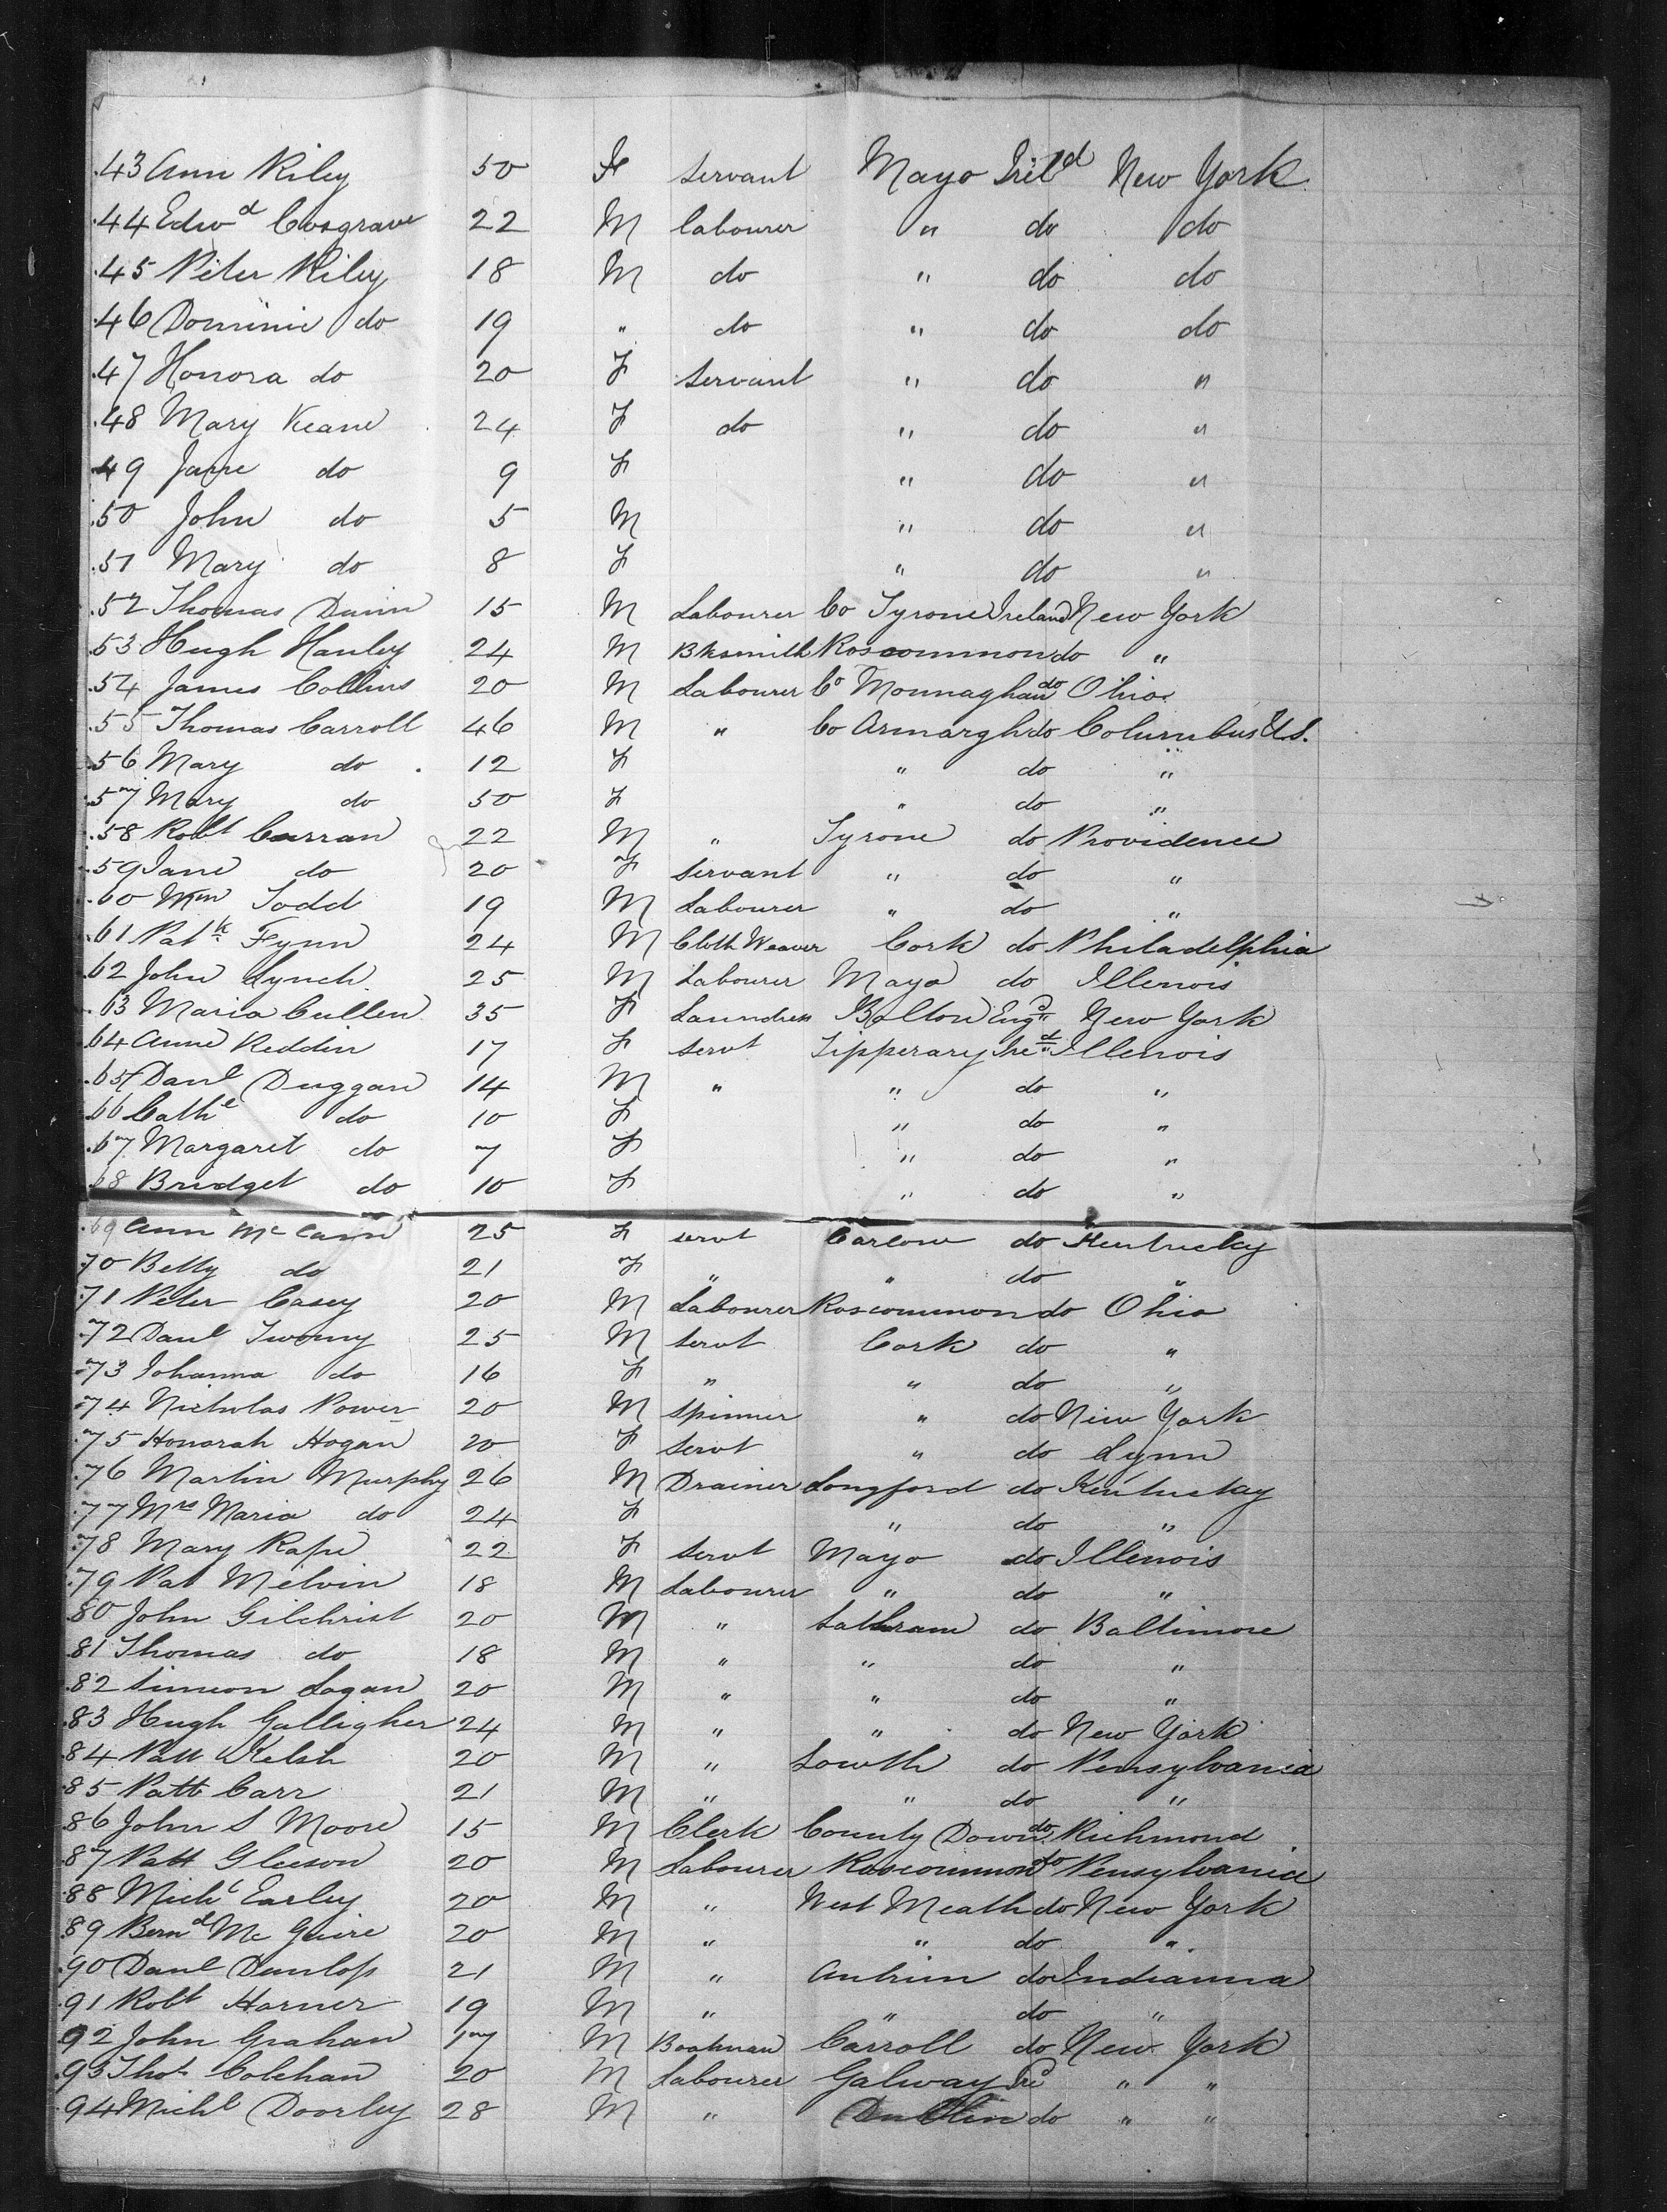 43 Ann Riley 50 F Servant Mayo Irel d New York
44 Edw d Cosgrave 22 M labourer " do do
45 Peter Riley 18 M do " do do
46 Dominic do 19 " do " do do
47 Honora do 20 F Servant " do "
48 Mary Keane 24 F do " do "
49 Jane do 9 F " do "
50 John do 5 M " do "
51 Mary do 8 F " do "
52 Thomas Dunn 15 M Labourer Co Tyrone Ireland New York
53 Hugh Hanley 24 M Bksmith Roscommon do "
54 James Collins 20 M Labourer Co Mounaghan do Ohio
55 Thomas Carroll 46 M " Co Armargh do Columbus U.S.
56 Mary do 12 F " do "
57 Mary do 50 F " do "
58 Robt Curran 22 M " Tyrone do Providence
59 Jane do 20 F Servant " do "
60 Wm Todd 19 M Labourer " do "
61 Pat k Flynn 24 M Cloth Weaver Cork do Philadelphia
62 John Lynch 25 M Labourer Mayo do Illenois
63 Maria Cullen 35 F Laundress Bolton Eng d New York
64 Anne Reddin 17 F Servt Tipperary Ire d Illenois
65 Danl Duggan 14 M " " do "
66 Cath e do 10 F " do "
67 Margaret do 7 F " do "
68 Bridget do 10 F " do "
69 Ann McCann 25 F servt Carlow do Kentucky
70 Betty do 21 F " " do "
71 Peter Casey 20 M Labourer Roscommon do Ohio
72 Danl Twomy 25 M Servt Cork do "
73 Johanna do 16 F " " do "
74 Nicholas Power 20 M Spinner " do New York
75 Honorah Hogan 20 F Servt " do Lynn
76 Martin Murphy 26 M Drainer Longford do Kentuckay
77 Mrs Maria do 24 F " do "
78 Mary Rape 22 F Servt Mayo do Illenois
79 Pat Melvin 18 M Labourer " do "
80 John Gilchrist 20 M " do Baltimore
81 Thomas do 18 M " " do "
82 Simeon Logan 20 M " " do "
83 Hugh Galligher 24 M " " do New York
84 Patt Welsh 20 M " Lowth do Pensylvania
85 Patt Carr 21 M " " do "
86 John S Moore 15 M Clerk County Down do Richmond
87 Patt Gleeson 20 M Labourer Roscommon do Pensylvania
88 Mich l Earley 20 M " West Meath do New York
89 Bern d Mc Guire 20 M " " do "
90 Danl Dunlop 21 M " Antrim do Indianna
91 Robt Harner 19 M " " do "
92 John Grahan 17 M Boatman Carroll do New York
93 Thos Colehan 20 M Labourer Galway Ire " "
94 Michl Doorley 28 M " Dublin do " "